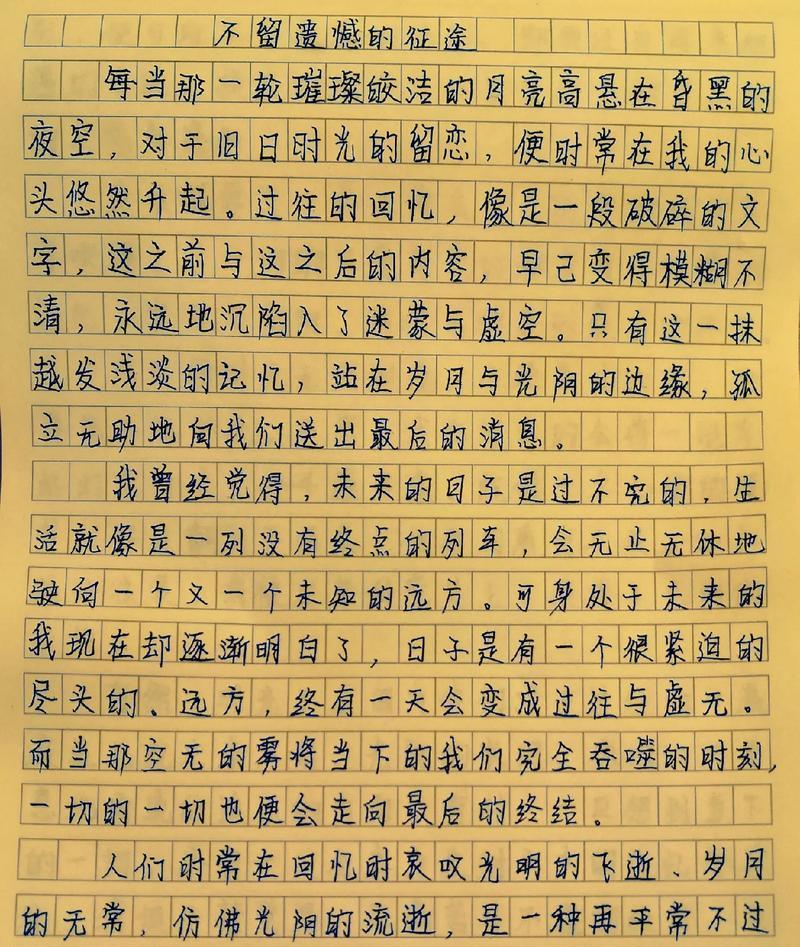 不留遗憾的征途
每当那一轮璀璨皎洁的月亮高悬在昏黑的
夜空，对于旧日时光的留恋，便时常在我的心
头悠然升起。过往的回忆，像是一段破碎的文
字，这之前与这之后的内容，早已变得模糊不
清，永远地沉陷入了迷蒙与虚空。只有这一抹
越发浅淡的记忆，站在岁月与光阴的边缘，孤
立无助地向我们送出最后的消息。
我曾经觉得，未来的日子是过不完的，生
活就像是一列没有终点的列车，会无止无休地
驶向一个又一个未知的远方。可身处于未来的
我现在却逐渐明白了，日子是有一个很紧迫的
尽头的、远方，终有一天会变成过往与虚无。
而当那空无的雾将当下的我们完全吞噬的时刻，
一切的一切也便会走向最后的终结。
人们时常在回忆时哀叹光明的飞逝、岁月
的无常，仿佛光阴的流逝，是一种再平常不过